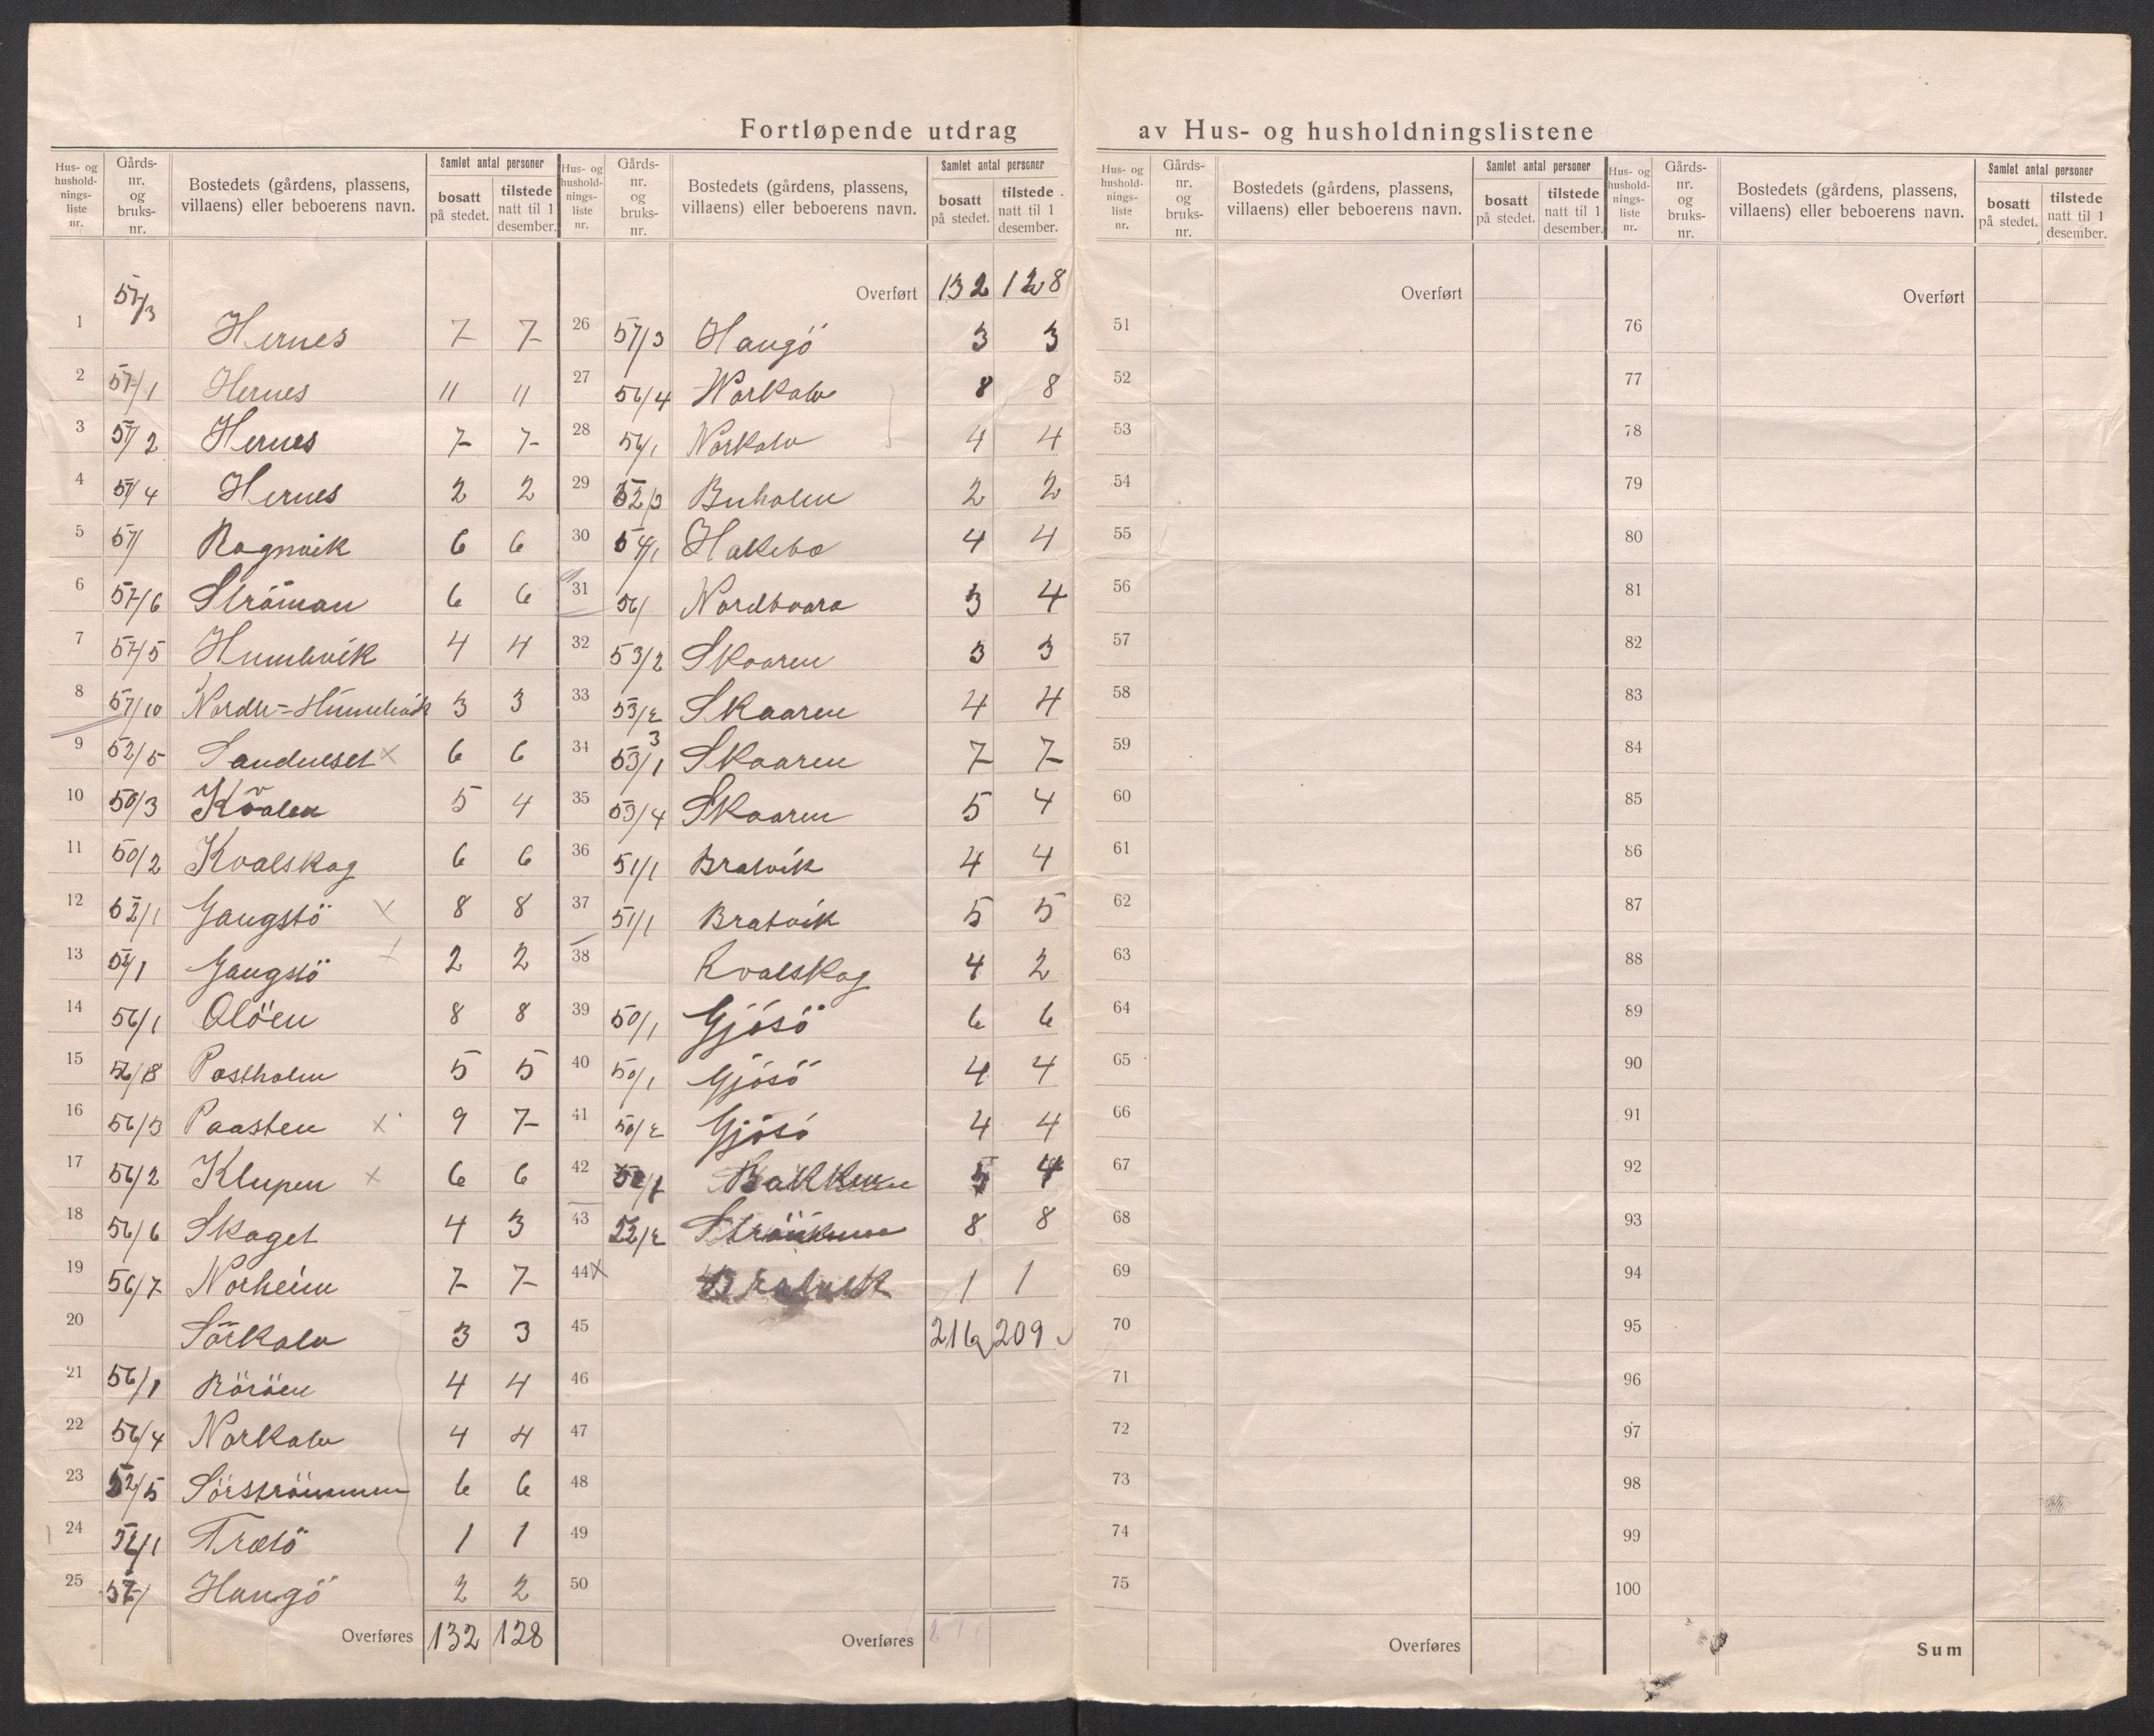 Fortløpende utdrag av Hus- og husholdningslistene
Hus- og hushold- nings- liste nr. | Gårds- nr. og bruks- nr. | Bostedets (gårdens, plassens, villaens) eller beboerens navn. | Samlet antal personer | bosatt på stedet. | tilstede natt til 1 desember.
1 57/3 Hernes 7 7
2 57/1 Hernes 11 11
3 57/2 Hernes 7 7
4 57/4 Hernes 2 2
5 57/ Ragnvik 6 6
6 57/6 Ströman 6 6
7 57/5 Humlevik 4 4
8 57/10 Nordre-Humlevik 3 3
9 52/5 Sandneset x 6 6
10 50/3 Kvalen 5 4
11 50/2 Kvalskog 6 6
12 52/1 Gangstö x 8 8
13 52/1 Gangstö x 2 2
14 56/1 Olöen 8 8
15 56/8 Postholm 5 5
16 56/3 Paasten x 9 7
17 56/2 Klupen x 6 6
18 56/6 Skaget 4 3
19 56/7 Norheim 7 7
20 Sörkalv 3 3
21 56/1 Röröen 4 4
22 56/4 Norkalv 4 4
23 52/5 Sörströmmen 6 6
24 52/1 Trætö 1 1
25 57/1 Haugö 2 2
Overføres 132 128
Hus- og hushold- nings- liste nr. | Gårds- nr. og bruks- nr. | Bostedets (gårdens, plassens, villaens) eller beboerens navn. | Samlet antal personer | bosatt på stedet. | tilstede natt til 1 desember.
Overført 132 128
26 57/3 Haugö 3 3
27 56/4 Norkalv 8 8
28 56/1 Norkalv 4 4
29 52/3 Buholm 2 2
30 54/1 Hakebo 4 4
31 56/ 3 4
32 53/2 Skaaren 3 3
33 53/2 Skaaren 4 4
34 53/1 3 Skaaren 7 7
35 53/4 Skaaren 5 4
36 51/1 Bratvik 4 4
37 51/1 Bratvik 5 5
38 Kvalskog 4 2
39 50/1 Gjösö 6 6
40 50/1 Gjösö 4 4
41 50/2 Gjösö 4 4
42 Bakken 5 4
43 52/2 8 8
44 x Bratvik 1 1
45 216 209
46
47
48
49
50
Overføres
Hus- og hushold- nings- liste nr. | Gårds- nr. og bruks- nr. | Bostedets (gårdens, plassens, villaens) eller beboerens navn. | Samlet antal personer | bosatt på stedet. | tilstede natt til 1 desember.
Overført
51
52
53
54
55
56
57
58
59
60
61
62
63
64
65
66
67
68
69
70
71
72
73
74
75
Overføres
Hus- og hushold- nings- liste nr. | Gårds- nr. og bruks- nr. | Bostedets (gårdens, plassens, villaens) eller beboerens navn. | Samlet antal personer | bosatt på stedet. | tilstede natt til 1 desember.
Overført
76
77
78
79
80
81
82
83
84
85
86
87
88
89
90
91
92
93
94
95
96
97
98
99
100
Sum